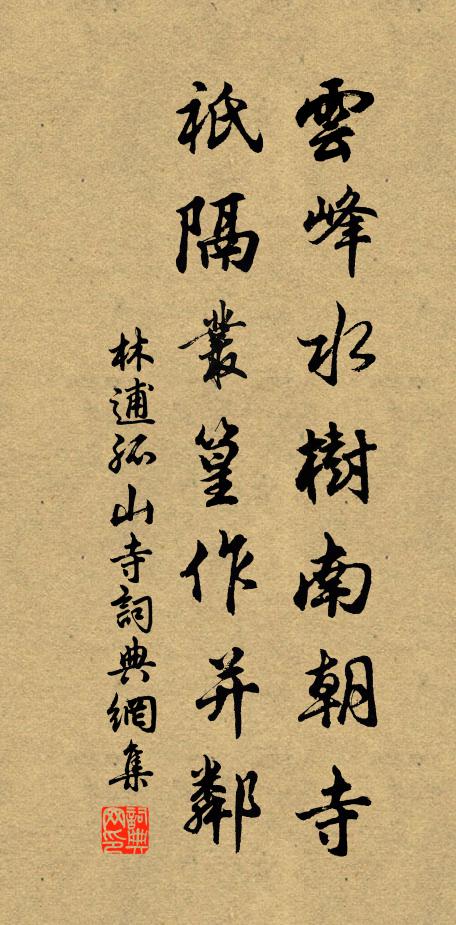 雲峰水樹南朝寺
祇隔叢篁作并鄰
林逋孤山寺詞典網集
詞典网印